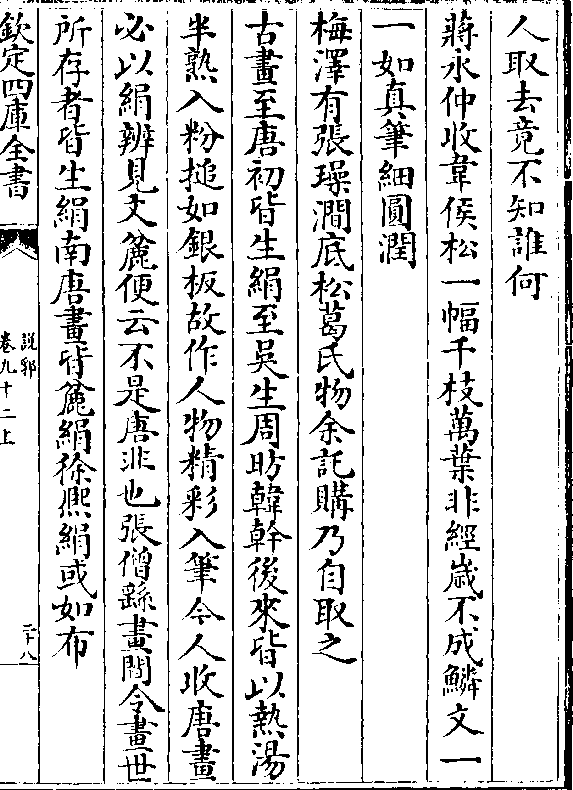 人取去竟不知誰何
蔣永仲收韋侯松一幅千枝萬葉非經歲不成鱗文一
一如真筆細圓潤
梅澤有張璪澗底松葛氏物余託購乃自取之
古畫至唐初皆生絹至吳生周昉韓幹後來皆以熱湯
半熟入粉搥如銀板故作人物精彩入筆今人收唐畫
必以絹辨見文麄便云不是唐非也張僧繇畫閻令畫世
所存者皆生絹南唐畫皆麄絹徐熙絹或如布
欽定四庫全書
說郛
卷九十二上
二十八